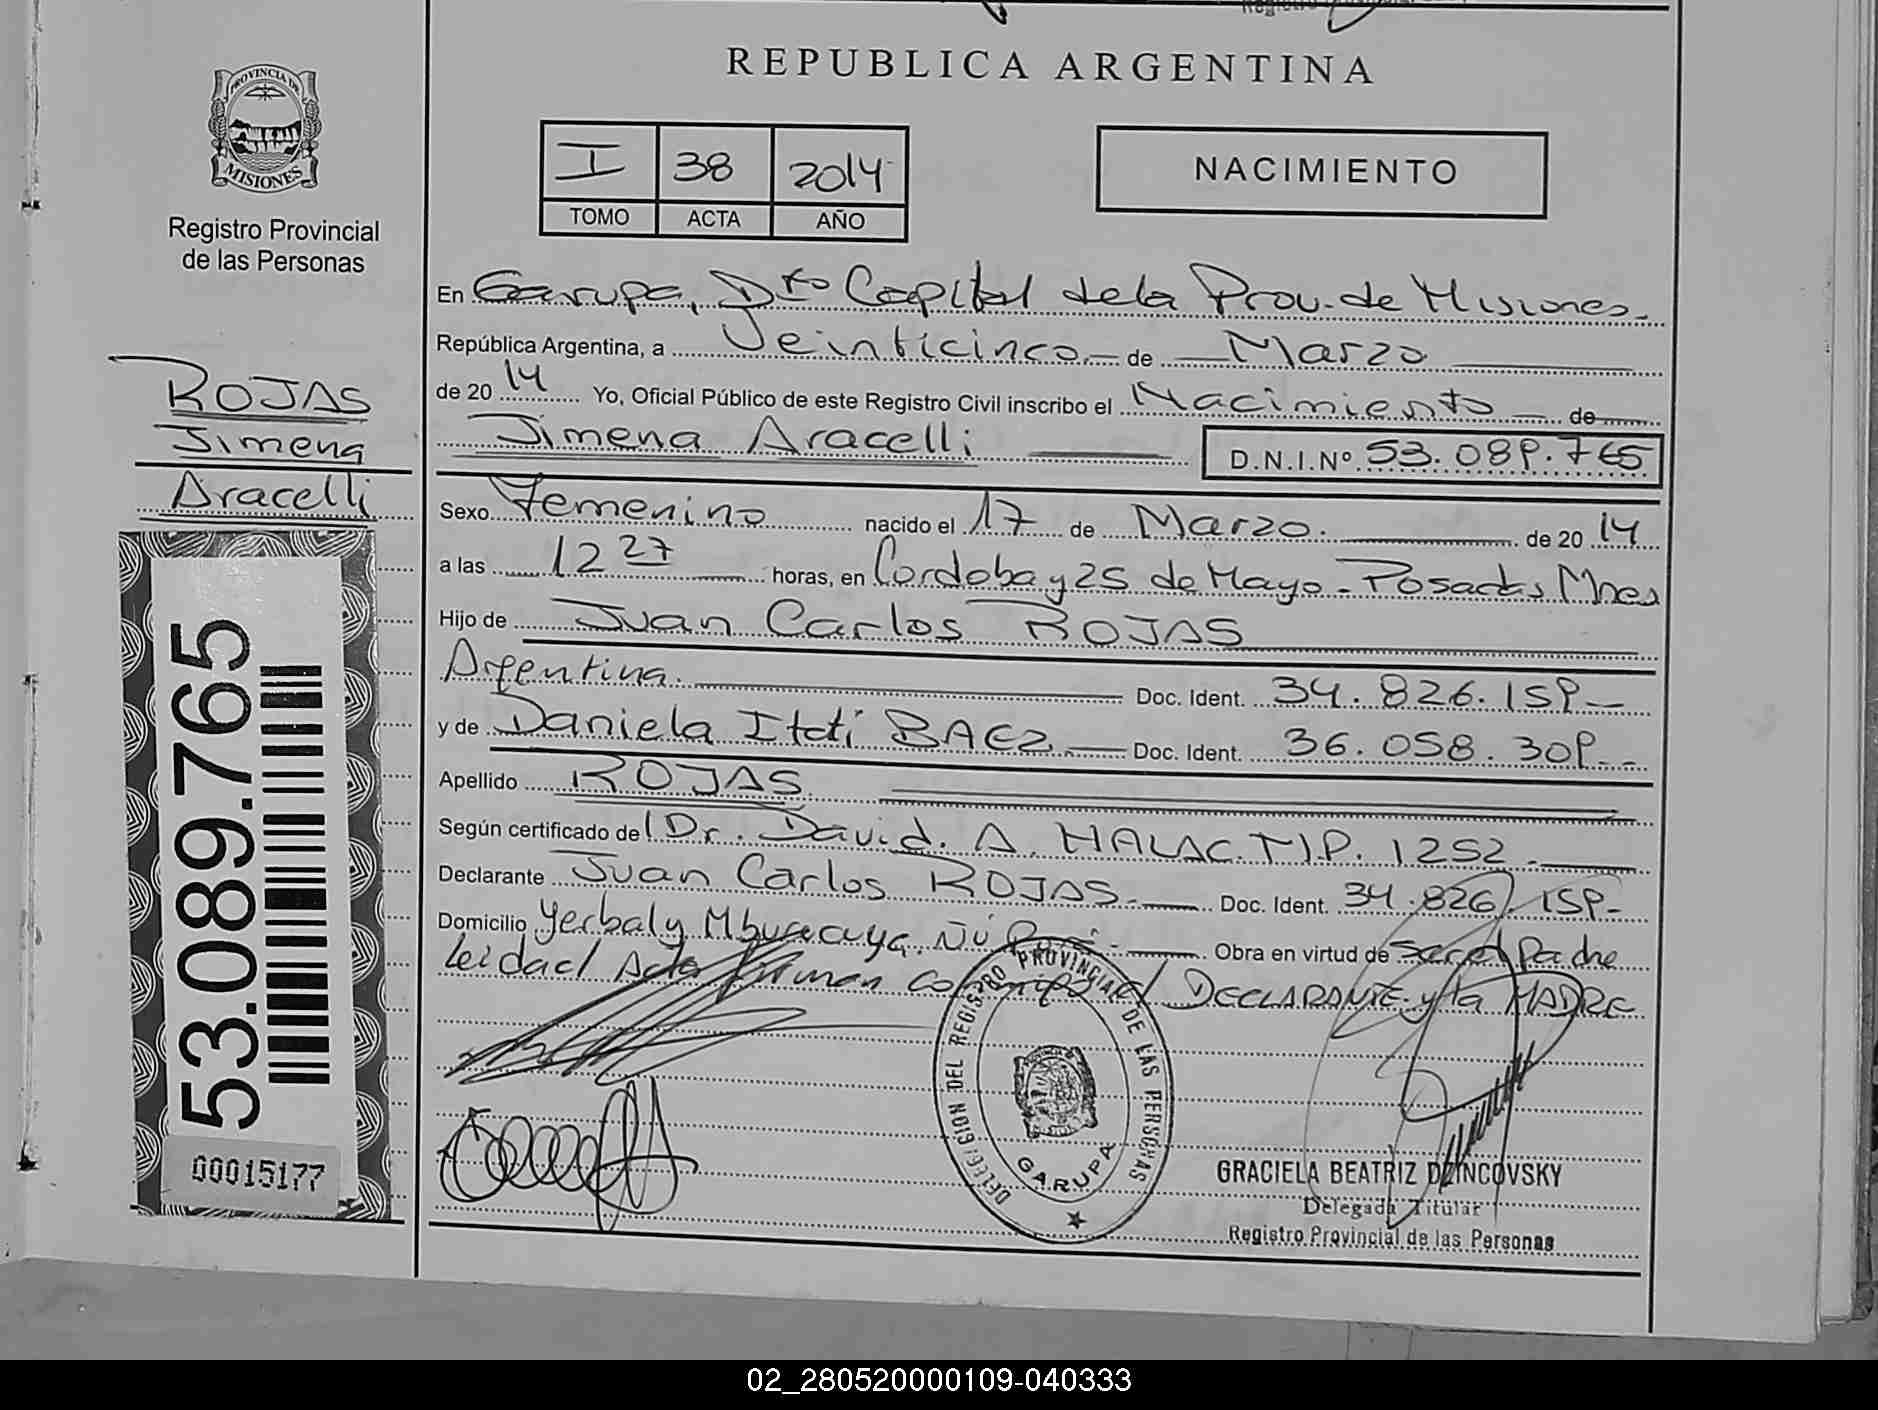 REPUBLICA ARGENTINA
PROVINCIA DE
MISIONES
Registro Provincial
de las Personas
I 38 2014
TOMO ACTA AÑO
NACIMIENTO
En Garupa, Dto Capital de la Prov. de Misiones.
República Argentina, a Veinticinco de Marzo
de 20 14 Yo, Oficial Público de este Registro Civil inscribo el Nacimiento de
Jimena Aracelli D.N.I.Nº 53.089.765
ROJAS
Jimena
Aracelli
Sexo Femenino nacido el 17 de Marzo. de 20 14
a las 12 27 horas, en Cordoba y 25 de Mayo - Posadas Mnes
Hijo de Juan Carlos ROJAS
Argentina. Doc. Ident. 34.826.159
y de Daniela Itatí BAEZ Doc. Ident. 36.058.309
Apellido ROJAS
Según certificado del Dr. David. A. HALAC. M.P. 1252
Declarante Juan Carlos ROJAS Doc. Ident. 34.826.159
Domicilio Yerbal y Mburucuya. Obra en virtud de ser el Padre
Leida el Acta firman conmigo el DECLARANTE y la MADRE
53.089.765
00015177
DELEGACION DEL REGISTRO PROVINCIAL DE LAS PERSONAS
GARUPA
GRACIELA BEATRIZ DZINCOVSKY
Delegada Titular
Registro Provincial de las Personas
02_280520000109-040333